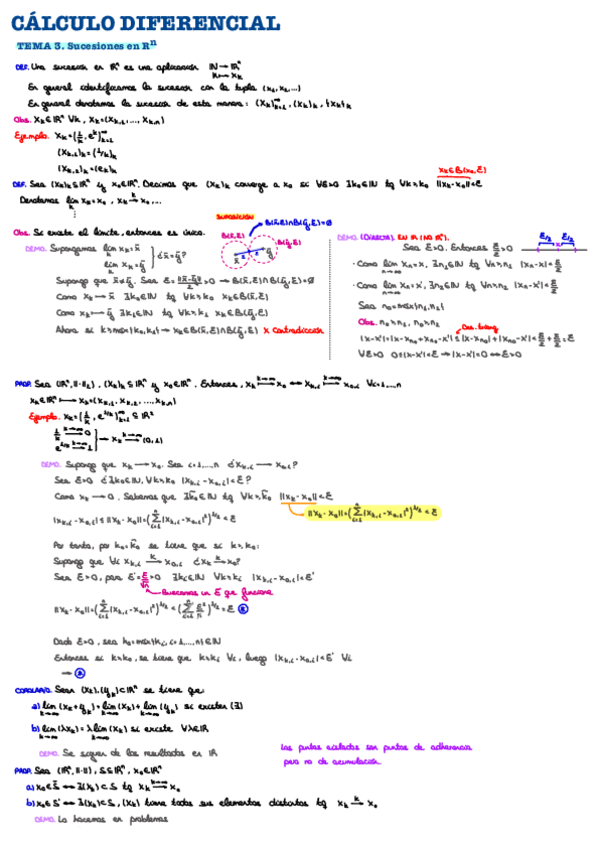 CÁLCULO DIFERENCIAL
TEMA 3. Sucesiones en Rⁿ
DEF. Una sucesión en ℝⁿ es una aplicación ℕ→ℝⁿ
k↦x_k
En general identificamos la sucesión con la tupla (x₁,x₂,...)
En general denotamos la sucesión de esta manera: (x_k)_{k=1}^∞, (x_k)_k, {x_k}_k
Obs. x_k∈ℝⁿ ∀k, x_k=(x_{k,1},...,x_{k,n})
Ejemplo. x_k=(1/k, e^k)_{k=1}^∞
(x_{k,1})_k=(1/k)_k
(x_{k,2})_k=(e^k)_k
x_k∈B(x₀,ε)
DEF. Sea (x_k)_k⊆ℝⁿ y x₀∈ℝⁿ. Decimos que (x_k)_k converge a x₀ si ∀ε>0 ∃k₀∈ℕ tq ∀k≥k₀ ||x_k-x₀||<ε
Denotamos lim x_k=x₀, x_k→x₀,...
k→∞
Obs. Si existe el límite, entonces es único.
SUPOSICIÓN
B(x̄,ε)∩B(ȳ,ε)=∅
B(x̄,ε)
B(ȳ,ε)
DEMO. Supongamos lim x_k=x̄
lim x_k=ȳ
¿x̄=ȳ?
Supongo que x̄≠ȳ. Sea ε=||x̄-ȳ||/2>0 → B(x̄,ε)∩B(ȳ,ε)=∅
Como x_k→x̄ ∃k₀∈ℕ tq ∀k≥k₀ x_k∈B(x̄,ε)
Como x_k→ȳ ∃k₁∈ℕ tq ∀k≥k₁ x_k∈B(ȳ,ε)
Ahora si k≥max{k₀,k₁} → x_k∈B(x̄,ε)∩B(ȳ,ε) x contradicción
DEMO. (Directa). EN ℝ (NO ℝⁿ).
ε/2 ε/2
Sea ε>0. Entonces ε/2>0
· Como lim x_n=x, ∃n₁∈ℕ tq ∀n≥n₁ |x_n-x|<ε/2
· Como lim x_n=x', ∃n₂∈ℕ tq ∀n≥n₂ |x_n-x'|<ε/2
Sea n₀=max{n₁,n₂}
Obs. n₀≥n₁, n₀≥n₂
Des. triang
|x-x'|=|x-x_{n₀}+x_{n₀}-x'|≤|x-x_{n₀}|+|x_{n₀}-x'|<ε/2+ε/2=ε
∀ε>0 0≤|x-x'|<ε → |x-x'|=0 ↔ ε>0
PROP. Sea (ℝⁿ,||·||₂), (x_k)_k⊆ℝⁿ y x₀∈ℝⁿ. Entonces, x_k →(k→∞) x₀ ↔ x_{k,i} →(k→∞) x_{0,i} ∀i=1,...,n
x_k∈ℝⁿ ↦ x_k=(x_{k,1}, x_{k,2}, ..., x_{k,n})
Ejemplo. x_k=(1/k, e^{1/k})_{k=1}^∞ ⊆ℝ²
1/k →(k→∞) 0
e^{1/k} →(k→∞) 1
→ x_k →(k→∞) (0,1)
DEMO. Supongo que x_k→x₀. Sea i=1,...,n ¿x_{k,i}→x_{0,i}?
Sea ε>0 ¿∃k₀∈ℕ, ∀k≥k₀ |x_{k,i}-x_{0,i}|<ε?
Como x_k→0. Sabemos que ∃k̃₀∈ℕ tq ∀k≥k̃₀ ||x_k-x₀||<ε
||x_k-x₀||=(Σ_{i=1}^n |x_{k,i}-x_{0,i}|²)^{1/2}<ε
|x_{k,i}-x_{0,i}|≤||x_k-x₀||=(Σ_{i=1}^n |x_{k,i}-x_{0,i}|²)^{1/2}<ε
Por tanto, por k₀=k̃₀ se tiene que si k≥k₀:
Supongo que ∀i x_{k,i} →(k→∞) x_{0,i} ¿x_k →(k→∞) x₀?
Sea ε>0, para ε'=ε/√n ∃k_i∈ℕ ∀k≥k_i |x_{k,i}-x_{0,i}|<ε'
Buscamos un ε que funcione
||x_k-x₀||=(Σ_{i=1}^n |x_{k,i}-x_{0,i}|²)^{1/2}<(Σ_{i=1}^n ε²/n)^{1/2}=ε
Dado ε>0, sea k₀=max{k_i, i=1,...,n}∈ℕ
Entonces si k≥k₀, se tiene que k≥k_i ∀i, luego |x_{k,i}-x_{0,i}|<ε' ∀i
→
COROLARIO. Sean (x_k),(y_k)⊂ℝⁿ se tiene que:
a) lim (x_k+y_k)=lim (x_k)+lim (y_k) si existen (∃)
k→∞ k→∞ k→∞
b) lim (λx_k)=λ lim (x_k) si existe ∀λ∈ℝ
k→∞ k→∞
DEMO. Se siguen de los resultados en ℝ
Los puntos aislados son puntos de adherencia
pero no de acumulación
PROP. Sea (ℝⁿ,||·||), S⊆ℝⁿ, x₀∈ℝⁿ
a) x₀∈S̄ ↔ ∃(x_k)⊂S tq x_k →(k→∞) x₀
b) x₀∈S' ↔ ∃(x_k)⊂S, (x_k) tiene todos sus elementos distintos tq x_k →(k→∞) x₀
DEMO. Lo hacemos en problemas